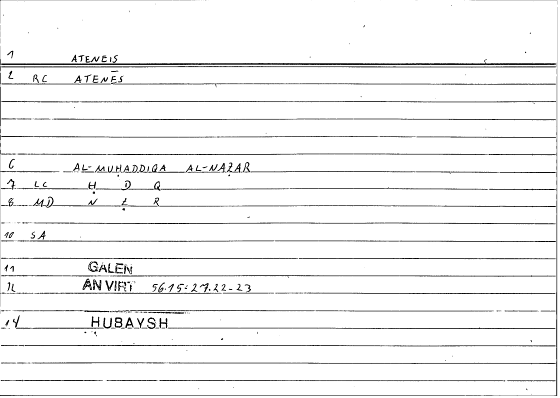 1 ATENEIS
2 RC ATENĒS
6 AL-MUḤADDIQA AL-NAẒAR
7 LC Ḥ D Q
8 MD N Ẓ R
10 SA
11 GALEN
12 AN VIRT 56.15: 27.22-23
14 HUBAYSH